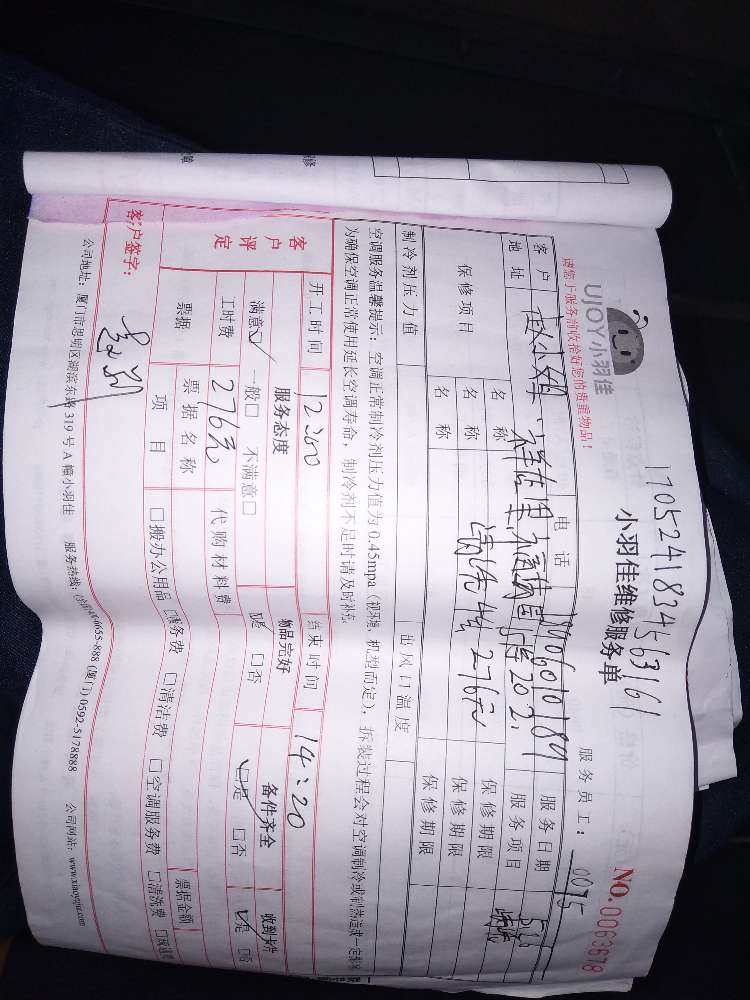 UJOY小羽佳
请您于服务前收拾好您的贵重物品!
1705241834563161
小羽佳维修服务单
服务员工: 0075
NO.0063678
客户 赵小姐 电话 服务日期
地址 服务项目
保修项目 名称 保修期限
名称 清洗 276元 保修期限
名称 保修期限
制冷剂压力值 出风口温度
空调服务温馨提示:空调正常制冷剂压力值为0.45mpa(视环境、机型而定),拆装过程会对空调制冷或制热造成一定损耗
为确保空调正常使用延长空调寿命,制冷剂不足时请及时补充。
开工时间 12:00 结束时间 14:20
客户评定
服务态度 物品完好 备件齐全
满意☑ 一般□ 不满意□ □是 □否 ☑是 □否 ☑是
工时费 276元 代购材料费
票据 票据名称 票据金额
项目 □搬办公用品 □清洁费 □空调服务费 □清洗费
客户签字:
公司地址:厦门市思明区湖滨东路319号A幢小羽佳 服务热线: (厦门) 0592-5178888 公司网站:www.xiaoyujia.com